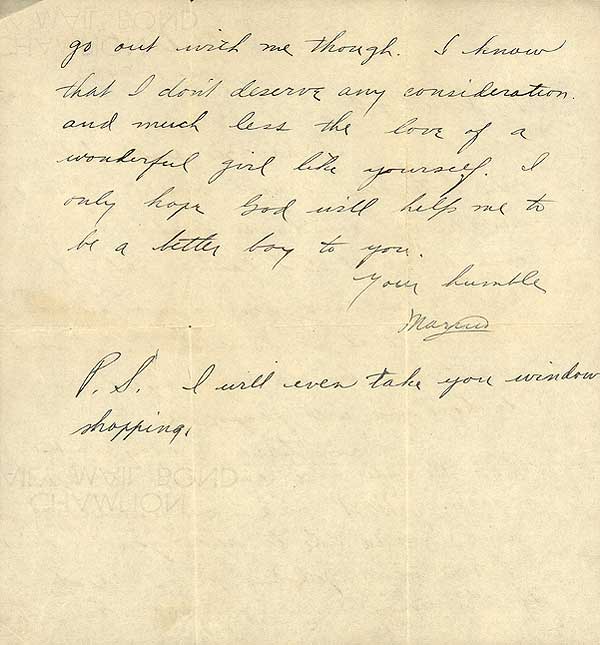 go out with me though. I know
that I don't deserve any consideration.
and much less the love of a
wonderful girl like yourself. I
only hope God will help me to
be a better boy to you.
Your humble
P. S. I will even take you window
shopping.
AIR MAIL BOND
CHAMPION